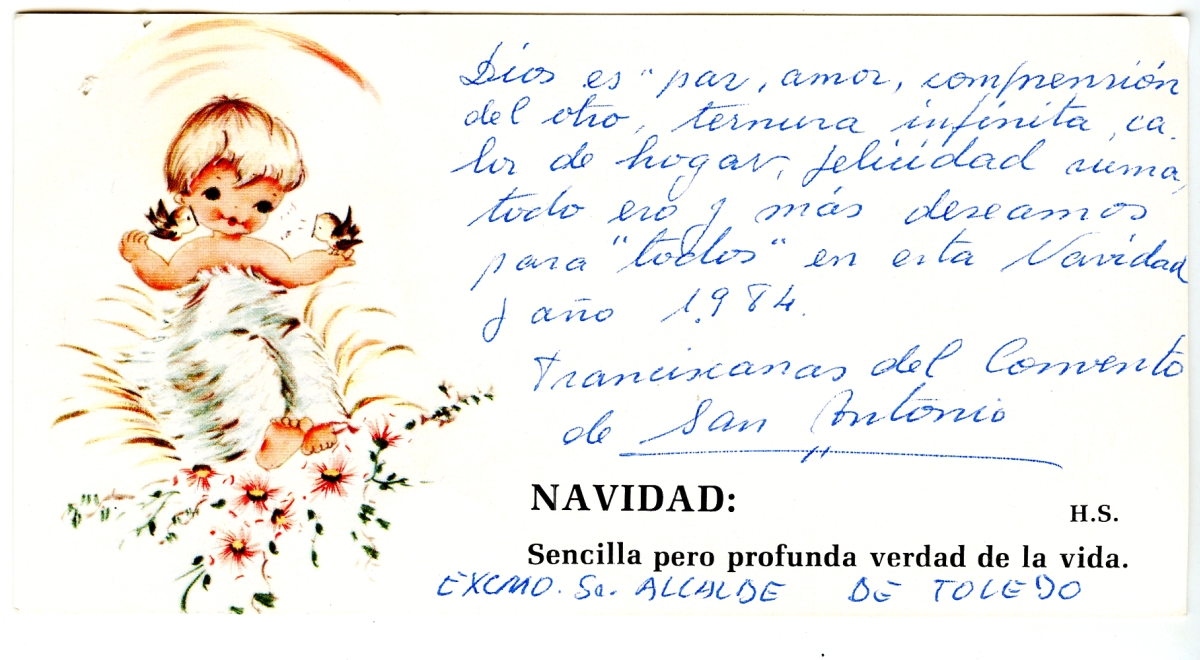 Dios es "paz, amor, comprensión
del otro, ternura infinita, ca-
lor de hogar, felicidad suma,
todo eso y más deseamos
para "todos" en esta Navidad
y año 1.984.
Franciscanas del Convento
de San Antonio
NAVIDAD:
H.S.
Sencilla pero profunda verdad de la vida.
EXCMO. Sr. ALCALDE DE TOLEDO